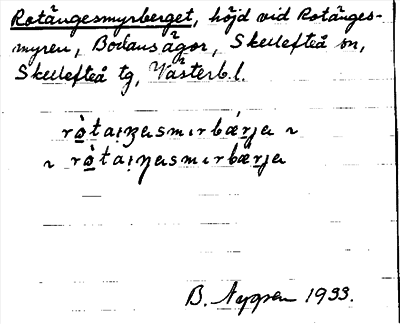 Rotängesmyrberget, höjd vid Rotänges-
myren, Bodans ägor, Skellefteå sn,
Skellefteå tg, Västerb. l.
rò̱taiʒasmırbǽrja ~
~ rò̱taiŋasmırbærja
B. Nygren 1933.